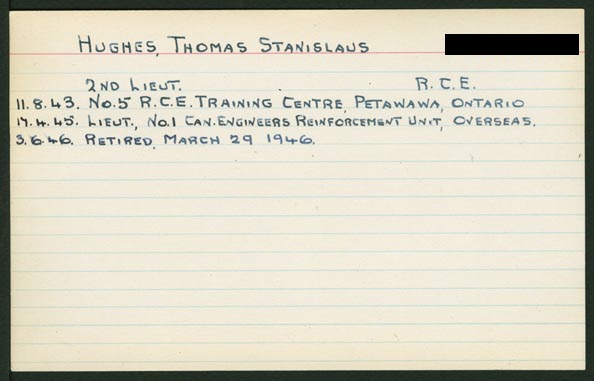 HUGHES, THOMAS STANISLAUS
2ND LIEUT. R.C.E.
11.8.43. NO.5 R.C.E. TRAINING CENTRE, PETAWAWA, ONTARIO
17.4.45. LIEUT., NO.1 CAN. ENGINEERS REINFORCEMENT UNIT, OVERSEAS.
3.6.46. RETIRED, MARCH 29 1946.